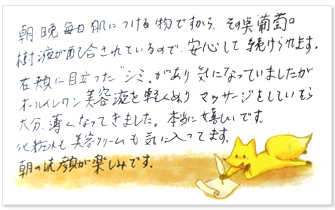 朝晩毎日肌につける物ですから、その点葡萄の
樹液が配合されているので、安心して続けられます。
右頬に目立った"シミ"があり気になっていましたが
オールインワン美容液を軽くぬりマッサージをしていたら
大分薄くなってきました。本当に嬉しいです。
化粧水も、美容クリームも気に入ってます。
朝の洗顔が楽しみです。